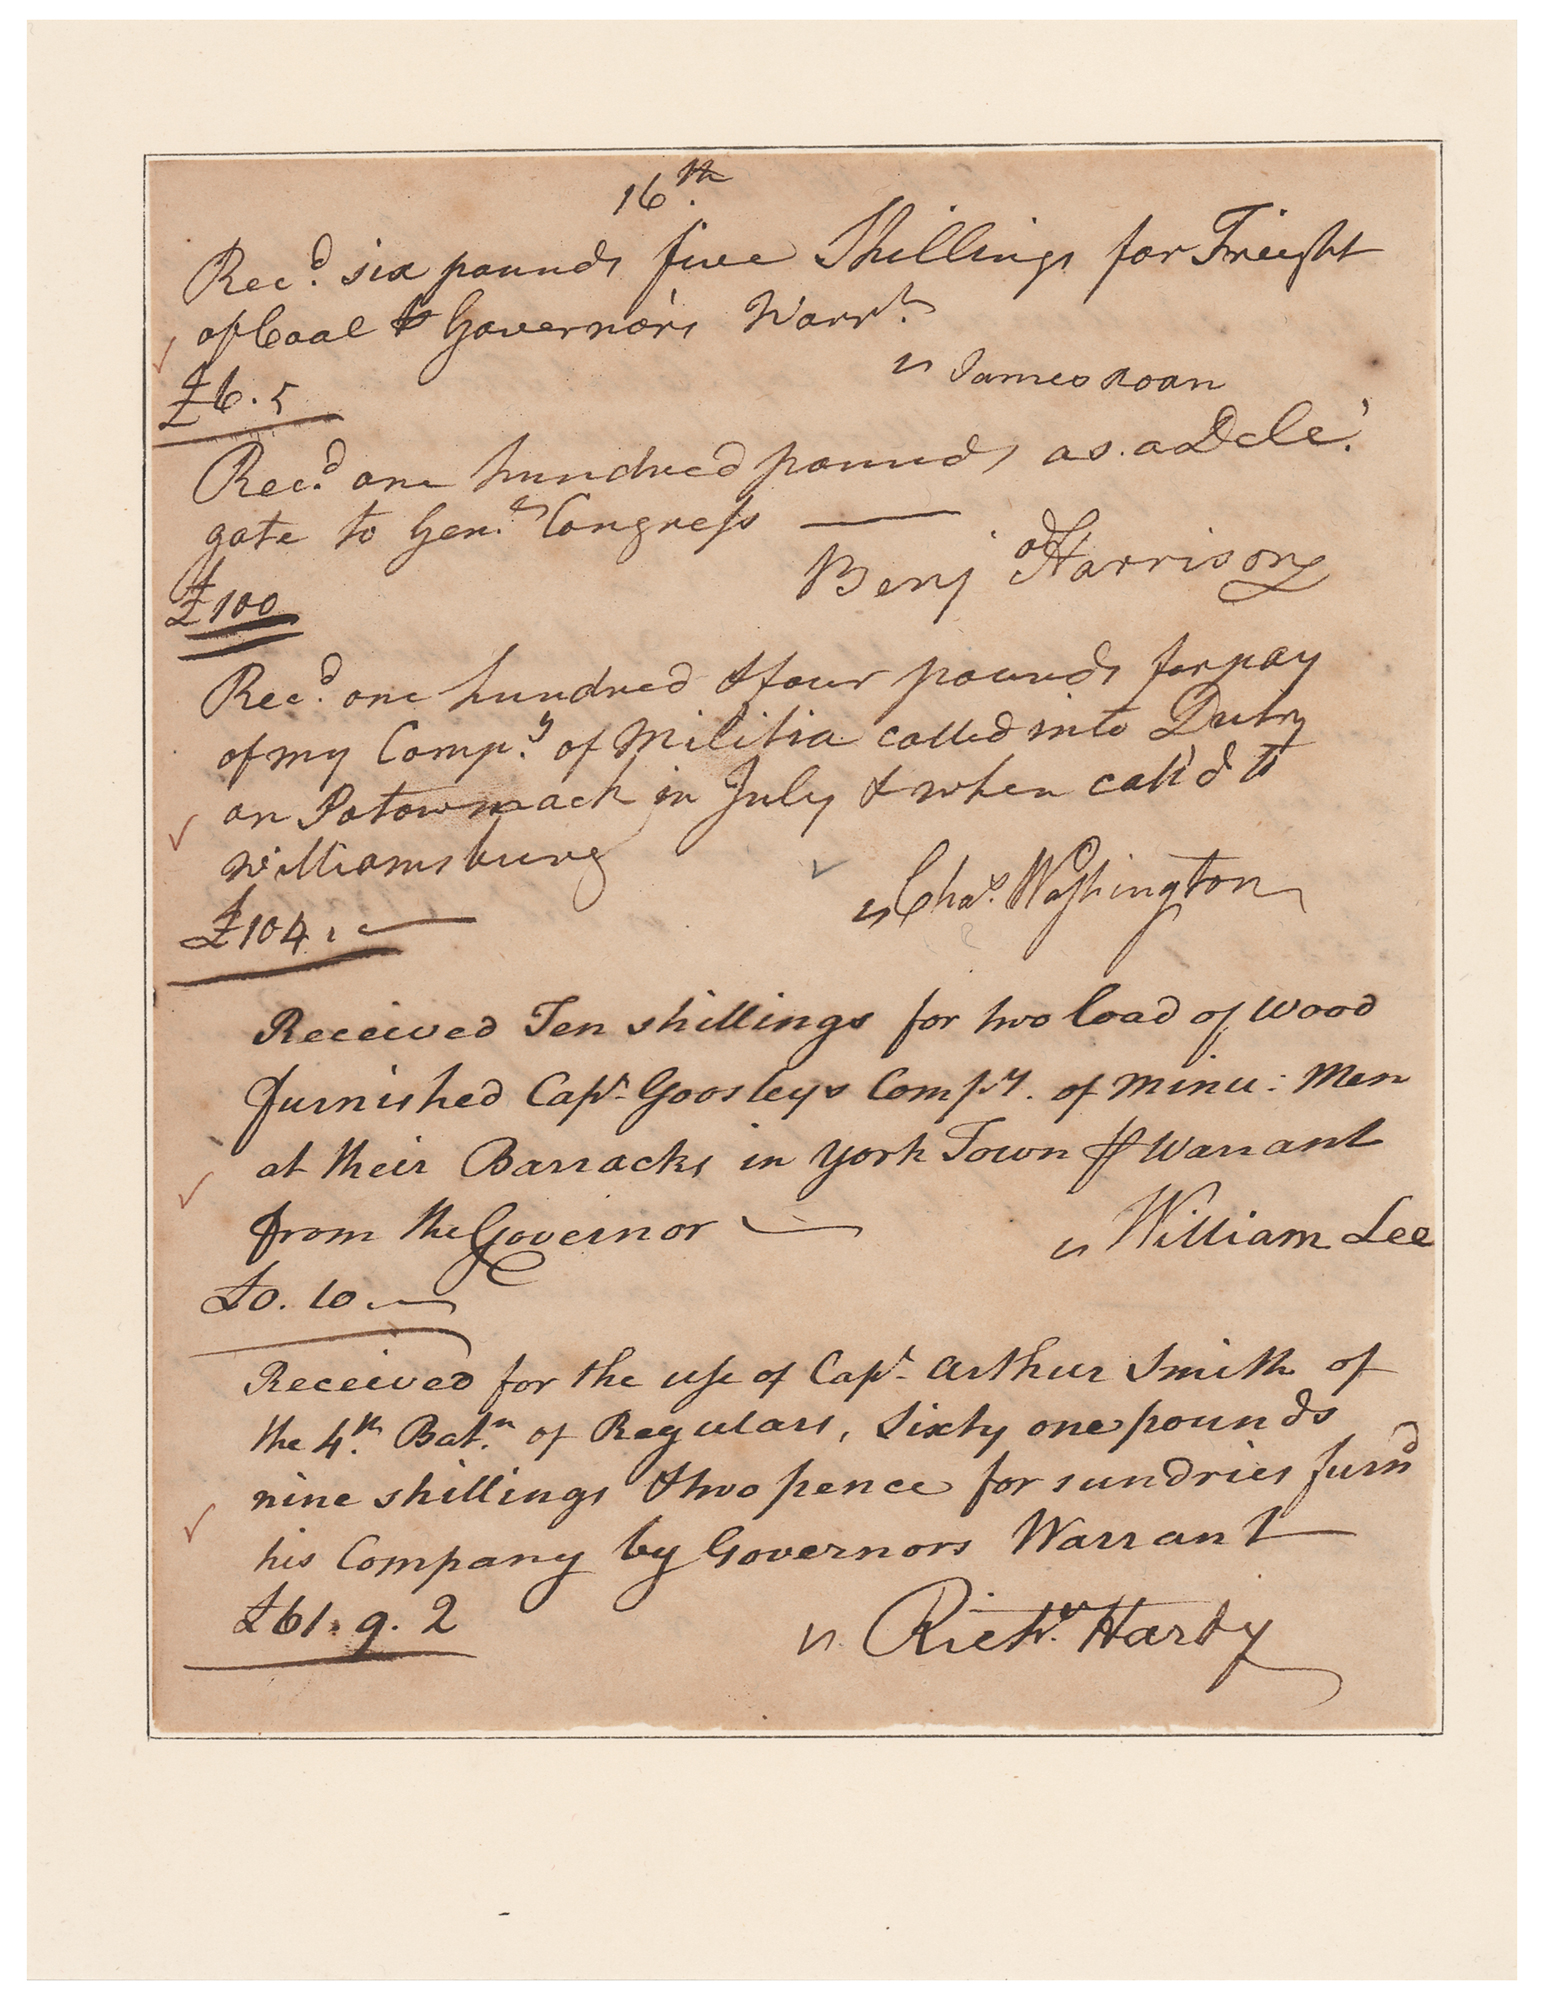 16th.
Recd. six pounds five Shillings for Freight
of Coal Governors Warrt.
James Roan
£6.5
Recd. one hundred pounds as a Dele
gate to Genl. Congress
Benj Harrison
£100
Recd. one hundred & four pounds for pay
of my Compy. of Militia called into Duty
on Potowmack in July & when call'd to
Williamsburg
Chas. Washington
£104.
Received Ten shillings for two load of wood
furnished Capt. Goosleys Compy. of Minu: Men
at their Barracks in York Town Warrant
from the Governor
William Lee
£0. 10.
Received for the use of Capt. Arthur Smith of
the 4th. Batn. of Regulars, Sixty one pounds
nine shillings & two pence for sundries furnd
his Company by Governors Warrant
£61. 9. 2
Richd. Hardy